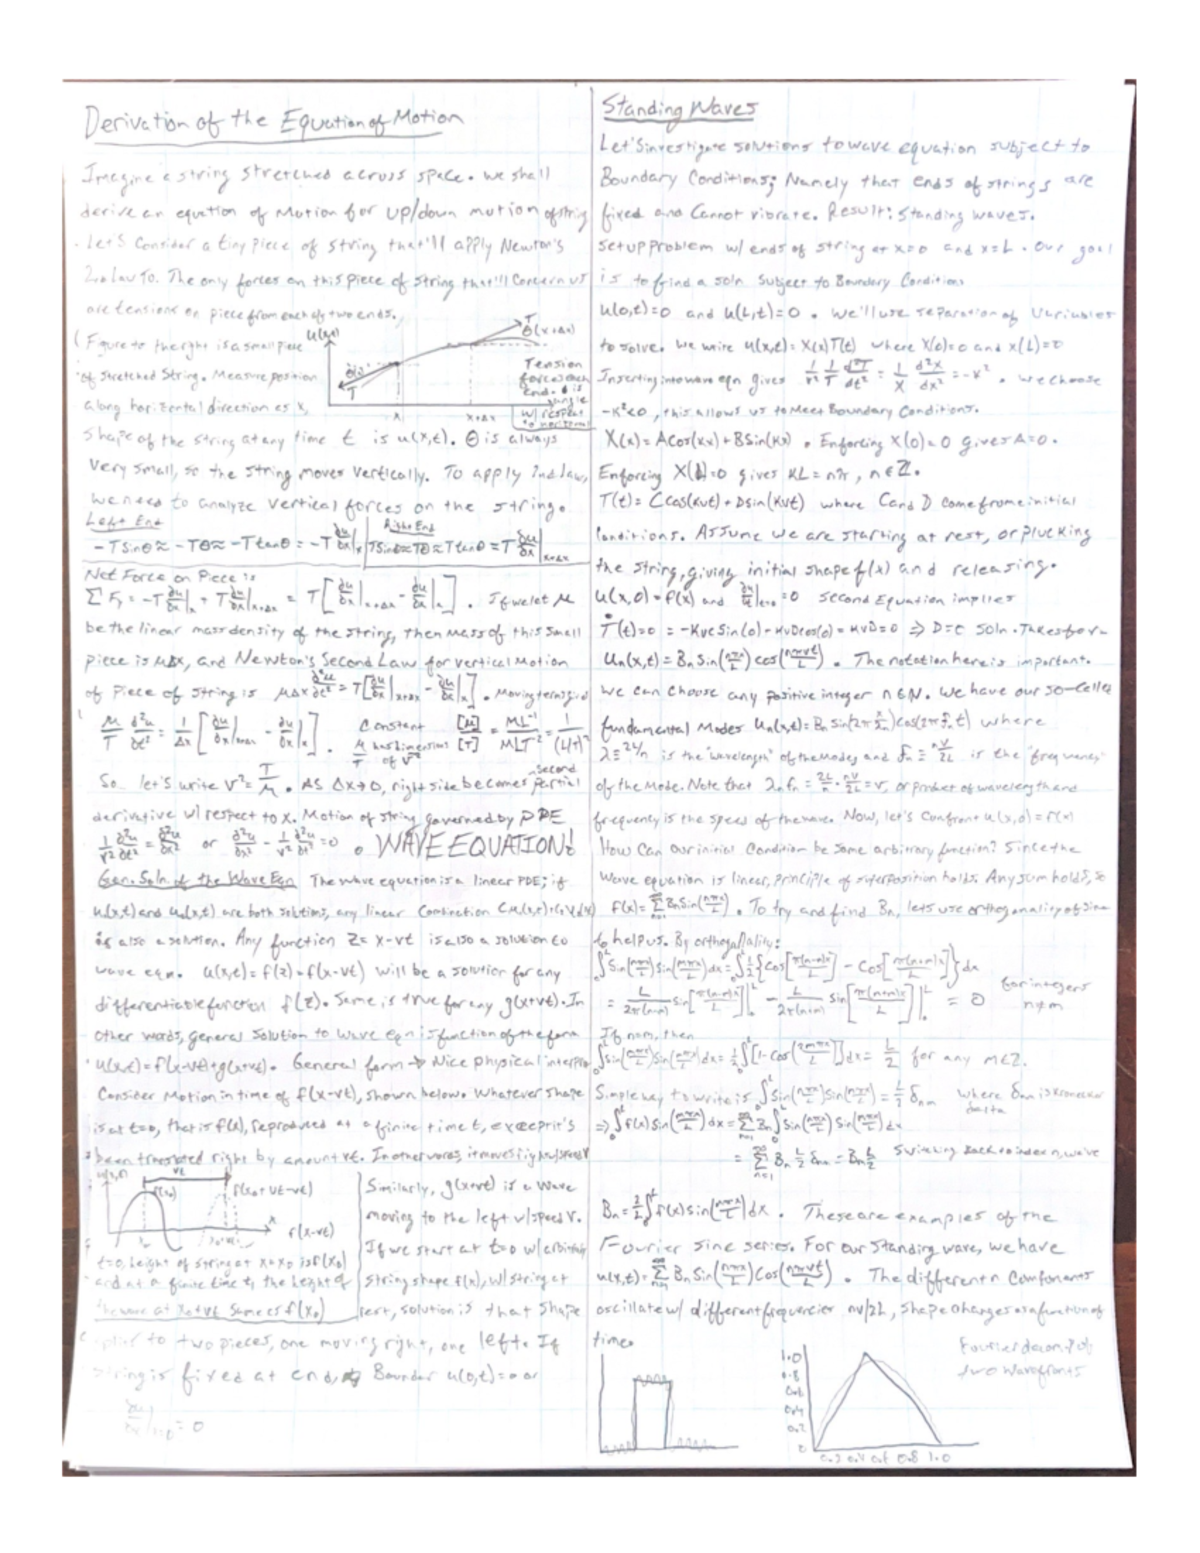 Derivation of the Equation of Motion
Imagine a string stretched across space. We shall
derive an equation of Motion for up/down motion of string
. Let's Consider a tiny piece of string that'll apply Newton's
2nd Law To. The only forces on this piece of string that'll Concern us
are tensions on piece from each of two ends.
(Figure to the right is a small piece
of Stretched String. Measure position
along horizontal direction as x,
u(x,t)
T
θ(x+Δx)
θ(x)
T
x
x+Δx
Tension
forces on each
end. θ is
angle
w/ respect
to horizontal
Shape of the string at any time t is u(x,t). θ is always
very small, so the string moves vertically. To apply 2nd Law,
we need to analyze vertical forces on the string.
Left End
-Tsinθ≈ -Tθ≈ -Ttanθ = -T ∂u/∂x|x
Right End
Tsinθ≈Tθ≈Ttanθ = T ∂u/∂x|x+Δx
Net Force on Piece is
ΣFy = -T ∂u/∂x|x + T ∂u/∂x|x+Δx = T[∂u/∂x|x+Δx - ∂u/∂x|x] . If we let μ
be the linear mass density of the string, then mass of this small
piece is μΔx, and Newton's Second Law for vertical Motion
of Piece of String is μΔx ∂²u/∂t² = T[∂u/∂x|x+Δx - ∂u/∂x|x] . Moving terms gives
μ/T ∂²u/∂t² = 1/Δx [∂u/∂x|x+Δx - ∂u/∂x|x] . Constant μ/T has dimensions of v⁻² [μ]/[T] = ML⁻¹/MLT⁻² = 1/(L/T)²
So let's write v² = T/μ . As Δx→0, right side becomes second partial
derivative w/ respect to x. Motion of string governed by PDE
1/v² ∂²u/∂t² = ∂²u/∂x² or ∂²u/∂x² - 1/v² ∂²u/∂t² = 0 . WAVE EQUATION!
Gen. Soln. of the Wave Eqn The wave equation is a linear PDE; if
u₁(x,t) and u₂(x,t) are both solutions, any linear Combination
is also a solution. Any function z = x-vt is also a solution to
wave eqn. u(x,t) = f(z) = f(x-vt) will be a solution for any
differentiable function f(z). Same is true for any g(x+vt). In
other words, general Solution to Wave eqn is function of the form
u(x,t) = f(x-vt)+g(x+vt). General form → Nice physical interpr
Consider Motion in time of f(x-vt), shown below. Whatever shape
is at t=0, that is f(x), reproduced at a finite time t, except it's
been translated right by amount vt. In other words, it moves right w/ speed v
u(x,t)
vt
f(x₀)
f(x₀+vt-vt)
x
f(x-vt)
t=0, height of string at x=x₀ is f(x₀)
and at a finite time t, the height of
the wave at x₀+vt same as f(x₀)
Similarly, g(x+vt) is a wave
moving to the left w/ speed v.
If we start at t=0 w/ arbitrary
string shape f(x), w/ string at
rest, solution is that shape
to two pieces, one moving right, one left. If
string is fixed at end, Boundar u(0,t)=0 or
∂u/∂x|x=0 = 0
Standing Waves
Let's investigate solutions to wave equation subject to
Boundary Conditions; Namely that ends of strings are
fixed and Cannot vibrate. Result: Standing waves.
Set up problem w/ ends of string at x=0 and x=L. Our goal
is to find a soln Subject to Boundary Conditions
u(0,t)=0 and u(L,t)=0 . We'll use separation of Variables
to solve. We write u(x,t)=X(x)T(t) where X(0)=0 and X(L)=0
Inserting into wave eqn gives 1/v² 1/T d²T/dt² = 1/X d²X/dx² = -k² . We choose
-k²<0, this allows us to meet Boundary Conditions.
X(x)=Acos(kx)+Bsin(kx) . Enforcing X(0)=0 gives A=0.
Enforcing X(L)=0 gives kL = nπ, n∈Z.
T(t)= Ccos(kvt)+Dsin(kvt) where C and D come from initial
Conditions. Assume we are starting at rest, or plucking
the string, giving initial shape f(x) and releasing.
u(x,0)=f(x) and ∂u/∂t|t=0 =0 Second Equation implies
Ṫ(t)=0 = -kvCsin(0)+kvDcos(0)=kvD=0 ⇒ D=0 Soln. Takes for-
uₙ(x,t) = Bₙ sin(nπx/L) cos(nπvt/L) . The notation here is important.
We can choose any positive integer n∈N. We have our so-called
fundamental Modes uₙ(x,t)=Bₙ sin(2π x/λₙ)cos(2π fₙ t) where
λ≡2L/n is the "wavelength" of the modes and fₙ ≡ nv/2L is the "frequency"
of the mode. Note that λₙfₙ = 2L/n · nv/2L = v, or product of wavelength and
frequency is the speed of the wave. Now, let's confront u(x,0)=f(x)
How can our initial Condition be some arbitrary function? Since the
wave equation is linear, principle of superposition holds. Any sum holds, so
f(x)= Σ n=1 ∞ Bₙ sin(nπx/L) . To try and find Bₙ, lets use orthogonality of sine
to help us. By orthogonality:
∫₀ᴸ sin(nπx/L) sin(mπx/L) dx = ∫₀ᴸ ½{cos[π(n-m)x/L] - cos[π(n+m)x/L]}dx
= L/2π(n-m) sin[π(n-m)x/L]|₀ᴸ - L/2π(n+m) sin[π(n+m)x/L]|₀ᴸ = 0 for integers n≠m
If n=m, then
∫₀ᴸ sin(nπx/L) sin(mπx/L) dx = ½∫₀ᴸ[1-cos(2mπx/L)]dx = L/2 for any m∈Z.
Simple way to write is ∫₀ᴸ sin(nπx/L) sin(mπx/L) = L/2 δnm where δnm is kronecker delta
⇒ ∫₀ᴸ f(x) sin(mπx/L) dx = Σ n=1 ∞ Bₙ ∫₀ᴸ sin(nπx/L) sin(mπx/L) dx
= Σ n=1 ∞ Bₙ L/2 δnm = Bm L/2 Switching back to index n, we've
Bₙ = 2/L ∫₀ᴸ f(x) sin(nπx/L) dx . These are examples of the
Fourier sine series. For our Standing wave, we have
u(x,t)= Σ n=1 ∞ Bₙ sin(nπx/L) cos(nπvt/L) . The different n Components
oscillate w/ different frequencies nv/2L, shape changes as a function of
time.
Fourier decomp of
two Wavefronts
1.0
0.8
0.6
0.4
0.2
0
0.2 0.4 0.6 0.8 1.0